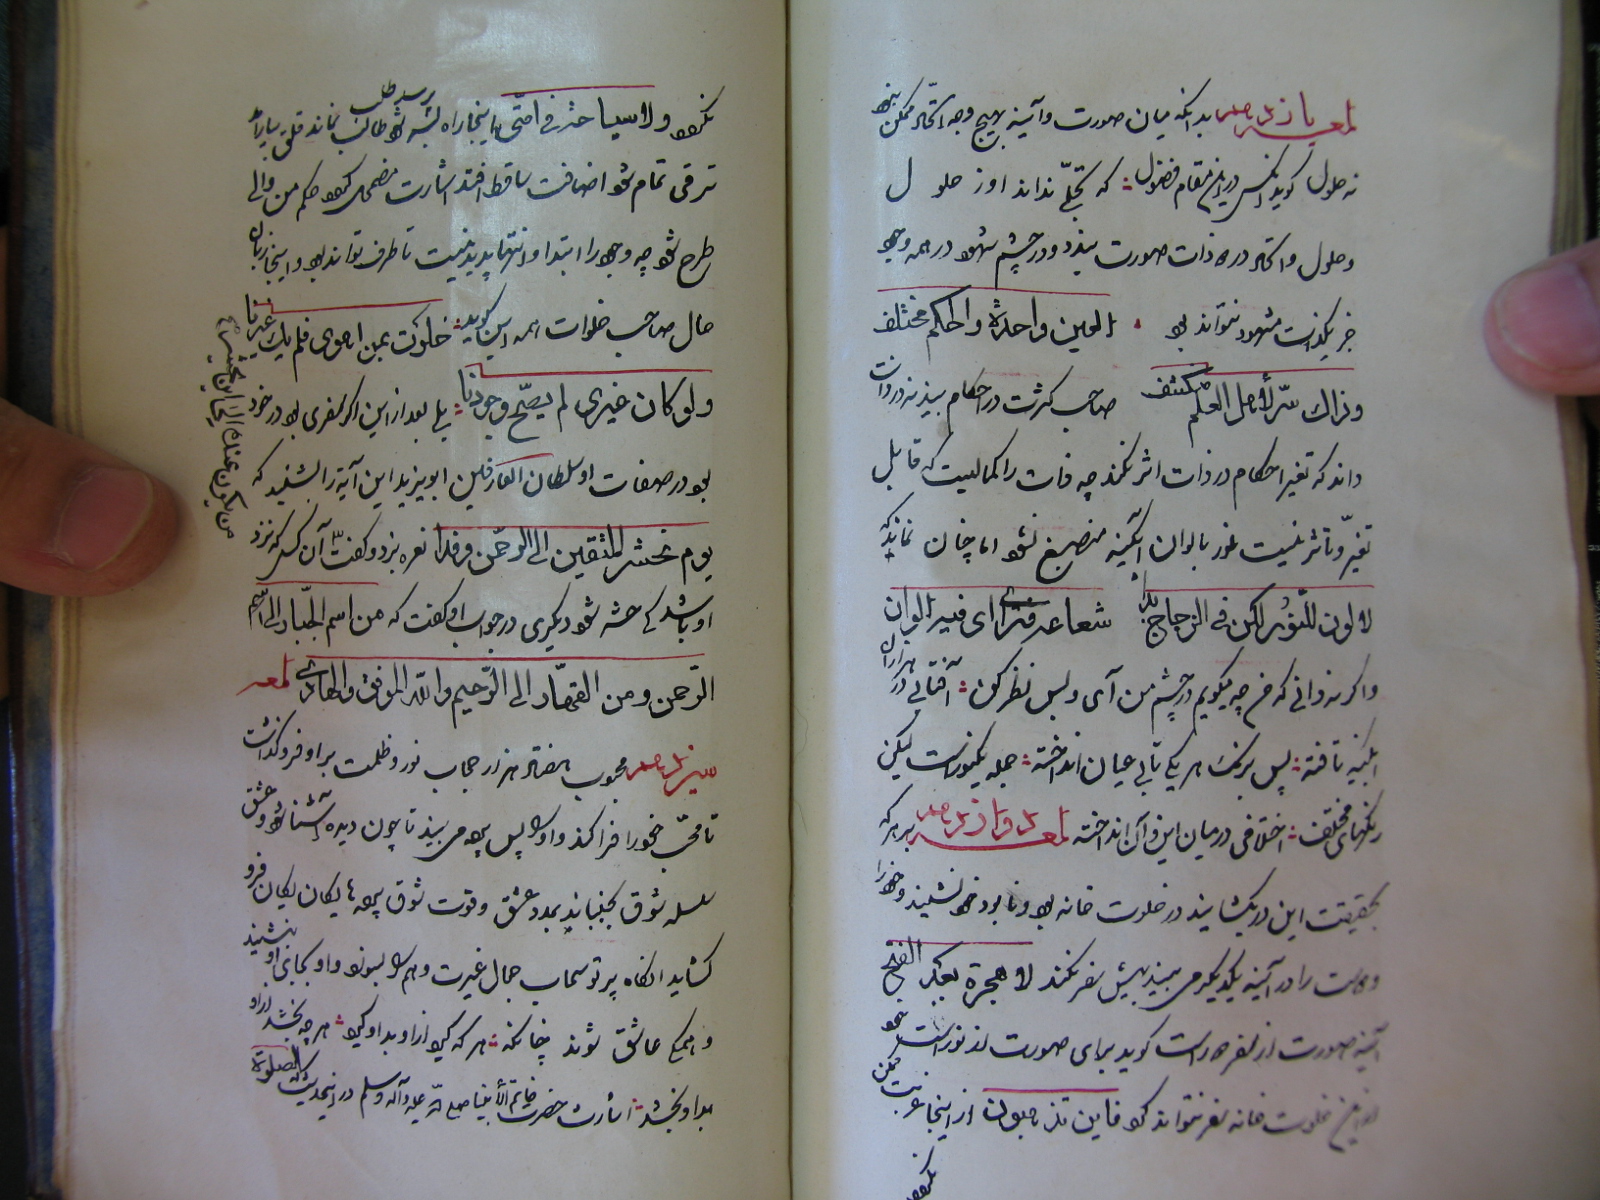 لمعه یازدهم بدانکه میان صورت و آینه بهیچ وجه اتحاد ممکن نبود
نه حلول گوید آنکس درین مقام فضول که تجلی نداند او ز حلول
و حلول و اتحاد در دو ذات صورت بندد و در چشم شهود در همه وجود
جز یکذات مشهود نتواند بود العین واحدة والحکم مختلف
وذاک سرّ لأهل العلم ینکشف صاحب کثرت در احکام بیند نه در ذات
داند که تغیر احکام در ذات اثر نکند چه ذات را کمالیست که قابل
تغیّر و تأثر نیست نور بالوان آبگینه منصبغ نشود اما چنان نماید که
لا لون للنّور لکن فی الزجاج بدا شعاعه فتراءی فیه الوان
و اگر ندانی که من چه میگویم در چشم من آی و پس نظر کن آفتابی در هزاران
آبگینه تافته پس برنگ هر یکی تابی عیان انداخته جمله یکنورست لیکن
رنگهای مختلف اختلافی در میان این و آن انداخته لمعه دوازدهم بر هر که
بحقیقت این در بگشایند در خلوت خانه بود و نابود خود نشیند و خود را
و دوست را در آینه یکدیگر می بیند بیش سفر نکند لا هجرة بعد الفتح
آینه صورت از سفر دورست کوپذیرای صورت از نورست
ازین خلوت خانه سفر نتواند کرد فاین تذهبون از اینجا غربت ممکن نبود
نکردد
نکردد ولا سیاحة فی امّتی اینجا راه بسته شود طالب نماند قلق بیارامد
ترقی تمام شود اضافت ساقط افتد اشارت مضمحل گردد حکم من والی
طرح شود چه وجود را ابتدا و انتها پدید نیست تا طرف تواند بود و اینجا زبان
حال صاحب خلوات همه این گوید خلوت بمن اهوی فلم یک غیرنا
ولو کان غیری لم یصحّ وجودنا بلی بعد ازین اگر سفری بود در خود
بود در صفات او سلطان العارفین ابویزید این آیة را شنید که
یوم نحشر المتقین الی الرحمن وفدا نعره بزد و گفت آن کس که نزد
او باشد کی حشر شود دیگری در جواب او گفت که من اسم الجبار الی اسم
الرّحمن ومن القهّار الی الرّحیم واللّه الموفق والهادی لمعه
سیزدهم محبوب هفتاد هزار حجاب نور و ظلمت بر او فرو گذاشت
تا محبّ خو را فرا کند و او را پس پرده می بیند تا چون دیده آشنا شود و عشق
سلسله شوق بجنباند بمدد عشق و قوت شوق پرده ها یکان یکان فرو
گشاید انگاه پرتو سبحات جمال غیرت وهم را بسوزد و او بجای او بنشیند
و همگی عاشق شود چنانکه هر که گیرد از او بدو گیرد هر چه بخشد ازو
بدو بخشد اشارت حضرت خاتم الأنبیا صلی اللّه علیه وآله وسلم در این حدیث که الصلوة
من یکون عنده الی این یحشر